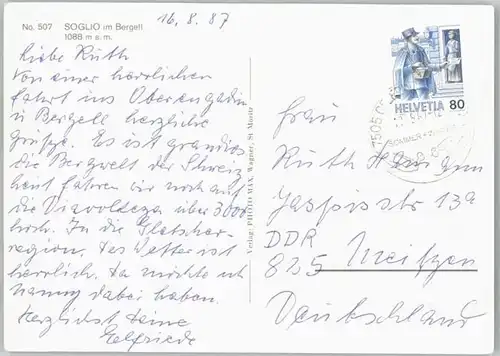 No. 507 SOGLIO im Bergell
1088 m ü. m.
16.8.87
Liebe Ruth
Von einer herrlichen
Fahrt ins Oberengadin
u Bergell herzliche
Grüsse. Es ist grandios
die Bergwelt der Schweiz
heut fahren wir noch auf
die Diavolezza über 3000
hoch. In die Gletscher-
region. Das Wetter ist
herrlich. Da möchte ich
dabei haben.
Herzlichst Deine
Elfriede
Verlag: PHOTO MAX, Wagner, St. Moritz
HELVETIA 80
7505
SOMMER +
Frau
Ruth
Jaspisstr 13a
DDR
825 Meißen
Deutschland